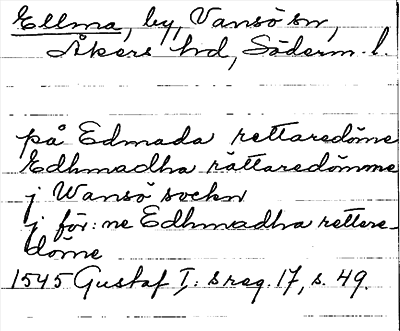 Ellma, by, Vansö sn,
Åkers hd, Söderm. l.
på Edmada rettaredöme
Edhmadha rättaredömme
j Wansö sockn
j för:ne Edhmadha rettare-
döme
1545 Gustaf I:s reg. 17, s. 49.